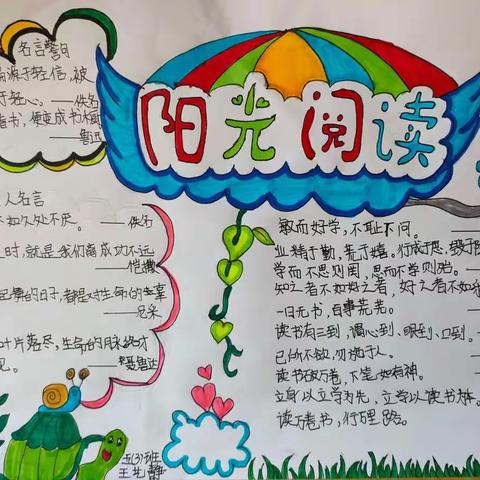 阳光阅读
名言警句
源于轻信,被
于轻心。——佚名
書,便变成书
——鲁迅
人名言
如久处不厌。
——佚名
时,就是我们离成功不远
舞的日子,都是对生命的辜
——尼采
叶片落尽,生命的脉络才
见。——聂鲁达
五(3)班
敏而好学,不耻下问。
业精于勤,荒于嬉。行成于思,毁于随
学而不思则罔,思而不学则殆。
知之者不如好之者,好之者不如
一日无书,百事荒芜。
读书有三到,谓心到、眼到、口到。
已所不欲,勿施于人。
读书破万卷,下笔如有神。
立身以立学为先,立学以读书为本。
读万卷书,行万里路。